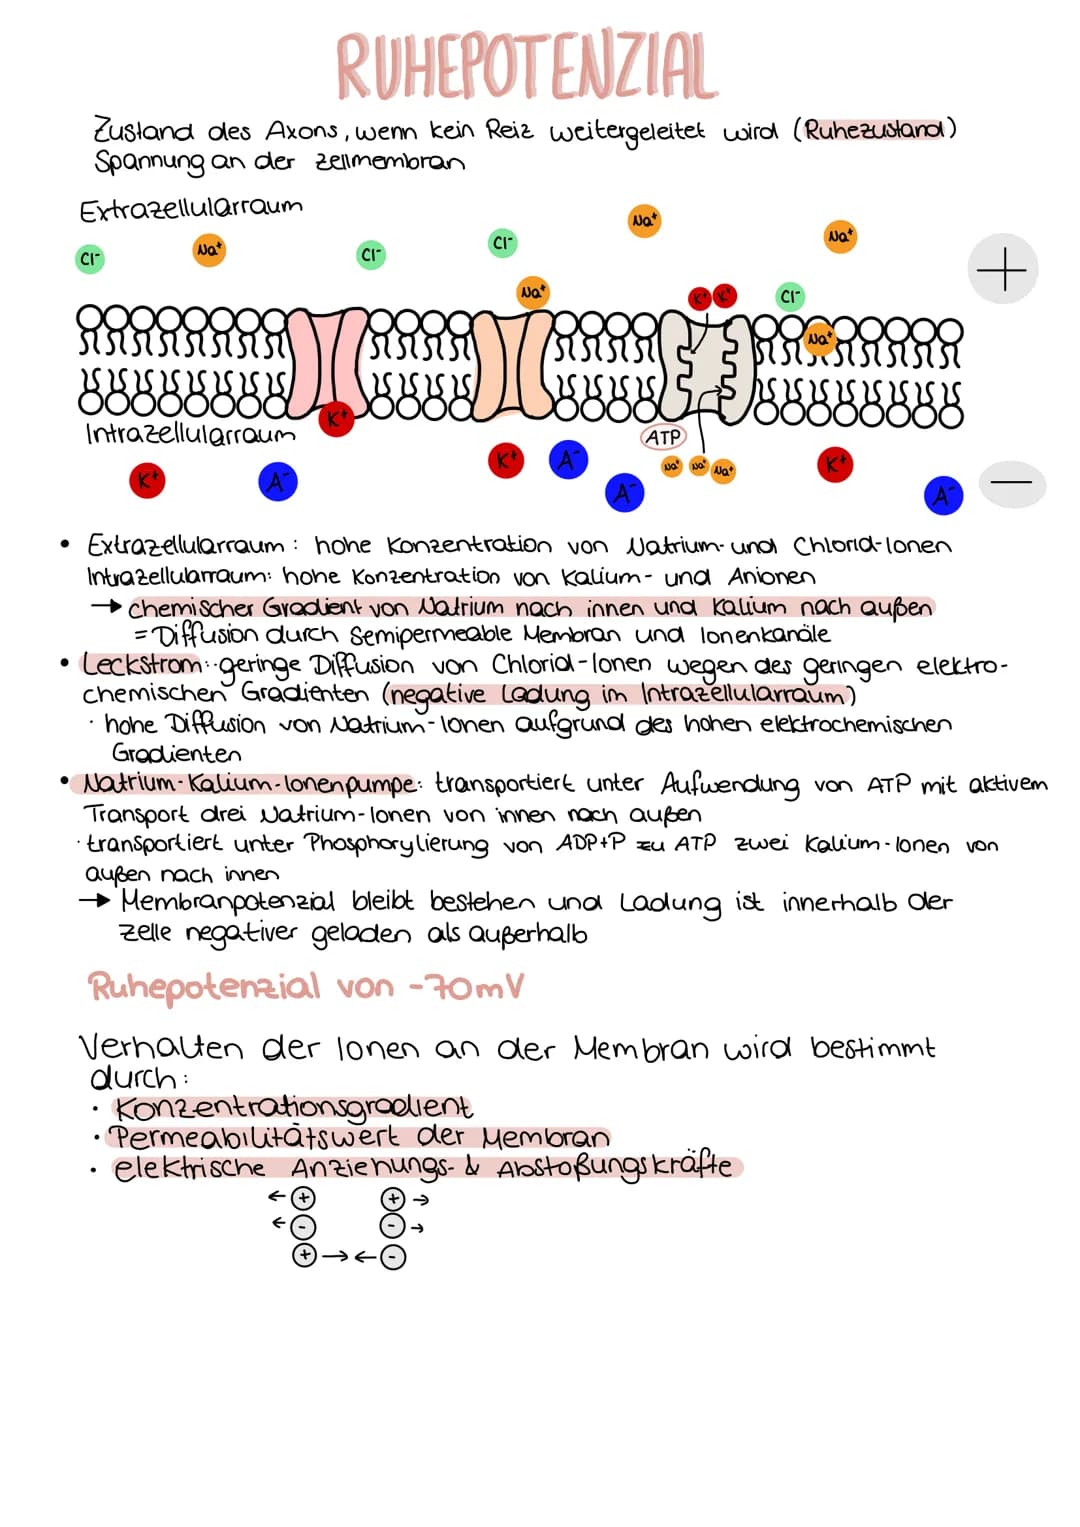 RUHEPOTENZIAL
Zustand des Axons, wenn kein Reiz weitergeleitet wird (Ruhezustand)
Spannung an der Zellmembran
Extrazellularraum
Cl⁻ Na⁺ Cl⁻ Cl⁻ Na⁺ Na⁺
+
Na⁺ K⁺ K⁺ Cl⁻
Na⁺
K⁺
Intrazellularraum
ATP
K⁺ A⁻ K⁺ A⁻ A⁻ Na⁺ Na⁺ Na⁺ K⁺ A⁻
−
• Extrazellularraum: hohe Konzentration von Natrium- und Chlorid-Ionen
Intrazellularraum: hohe Konzentration von Kalium- und Anionen
→ chemischer Gradient von Natrium nach innen und Kalium nach außen
= Diffusion durch Semipermeable Membran und Ionenkanäle
• Leckstrom: · geringe Diffusion von Chlorid-Ionen wegen des geringen elektro-
chemischen Gradienten (negative Ladung im Intrazellularraum)
· hohe Diffusion von Natrium-Ionen aufgrund des hohen elektrochemischen
Gradienten
• Natrium-Kalium-Ionenpumpe: transportiert unter Aufwendung von ATP mit aktivem
Transport drei Natrium-Ionen von innen nach außen
· transportiert unter Phosphorylierung von ADP+P zu ATP zwei Kalium-Ionen von
außen nach innen
→ Membranpotenzial bleibt bestehen und Ladung ist innerhalb der
Zelle negativer geladen als außerhalb
Ruhepotenzial von -70mV
Verhalten der Ionen an der Membran wird bestimmt
durch:
· Konzentrationsgradient
· Permeabilitätswert der Membran
· elektrische Anziehungs- & Abstoßungskräfte
← + + →
← - - →
+ → ← -